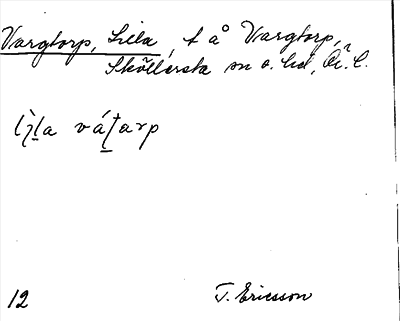 Vargtorp, Lilla, t å Vargtorp,
Sköllersta sn o. hd, Ör. l.
lı̀l̠a vát̠arp
12 T. Ericsson